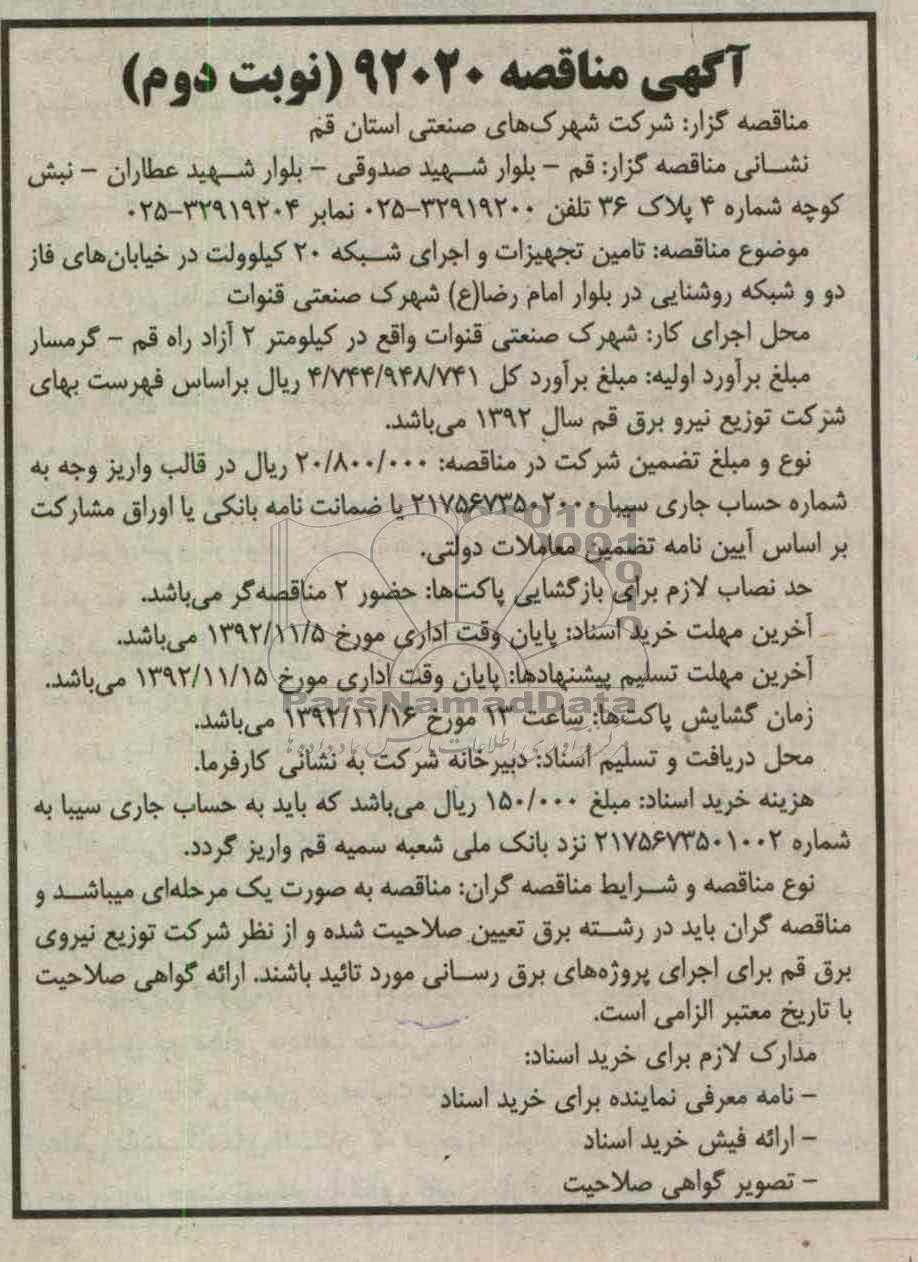 آگهی مناقصه ۹۲۰۲۰ (نوبت دوم)
مناقصه گزار: شرکت شهرک‌های صنعتی استان قم
نشانی مناقصه گزار: قم – بلوار شهید صدوقی – بلوار شهید عطاران – نبش
کوچه شماره ۴ پلاک ۳۶ تلفن ۳۲۹۱۹۲۰۰-۰۲۵ نمابر ۳۲۹۱۹۲۰۴-۰۲۵
موضوع مناقصه: تامین تجهیزات و اجرای شبکه ۲۰ کیلوولت در خیابان‌های فاز
دو و شبکه روشنایی در بلوار امام رضا(ع) شهرک صنعتی قنوات
محل اجرای کار: شهرک صنعتی قنوات واقع در کیلومتر ۲ آزاد راه قم – گرمسار
مبلغ برآورد اولیه: مبلغ برآورد کل ۴/۷۴۴/۹۴۸/۷۴۱ ریال براساس فهرست بهای
شرکت توزیع نیرو برق قم سال ۱۳۹۲ می‌باشد.
نوع و مبلغ تضمین شرکت در مناقصه: ۲۰/۸۰۰/۰۰۰ ریال در قالب واریز وجه به
شماره حساب جاری سیبا ۲۱۷۵۶۷۳۵۰۲۰۰۰ یا ضمانت نامه بانکی یا اوراق مشارکت
بر اساس آیین نامه تضمین معاملات دولتی.
حد نصاب لازم برای بازگشایی پاکت‌ها: حضور ۲ مناقصه‌گر می‌باشد.
آخرین مهلت خرید اسناد: پایان وقت اداری مورخ ۱۳۹۲/۱۱/۵ می‌باشد.
آخرین مهلت تسلیم پیشنهادها: پایان وقت اداری مورخ ۱۳۹۲/۱۱/۱۵ می‌باشد.
ParsNamadData
زمان گشایش پاکت‌ها: ساعت ۱۳ مورخ ۱۳۹۲/۱۱/۱۶ می‌باشد.
محل دریافت و تسلیم اسناد: دبیرخانه شرکت به نشانی کارفرما.
هزینه خرید اسناد: مبلغ ۱۵۰/۰۰۰ ریال می‌باشد که باید به حساب جاری سیبا به
شماره ۲۱۷۵۶۷۳۵۰۱۰۰۲ نزد بانک ملی شعبه سمیه قم واریز گردد.
نوع مناقصه و شرایط مناقصه گران: مناقصه به صورت یک مرحله‌ای میباشد و
مناقصه گران باید در رشته برق تعیین صلاحیت شده و از نظر شرکت توزیع نیروی
برق قم برای اجرای پروژه‌های برق رسانی مورد تائید باشند. ارائه گواهی صلاحیت
با تاریخ معتبر الزامی است.
مدارک لازم برای خرید اسناد:
– نامه معرفی نماینده برای خرید اسناد
– ارائه فیش خرید اسناد
– تصویر گواهی صلاحیت